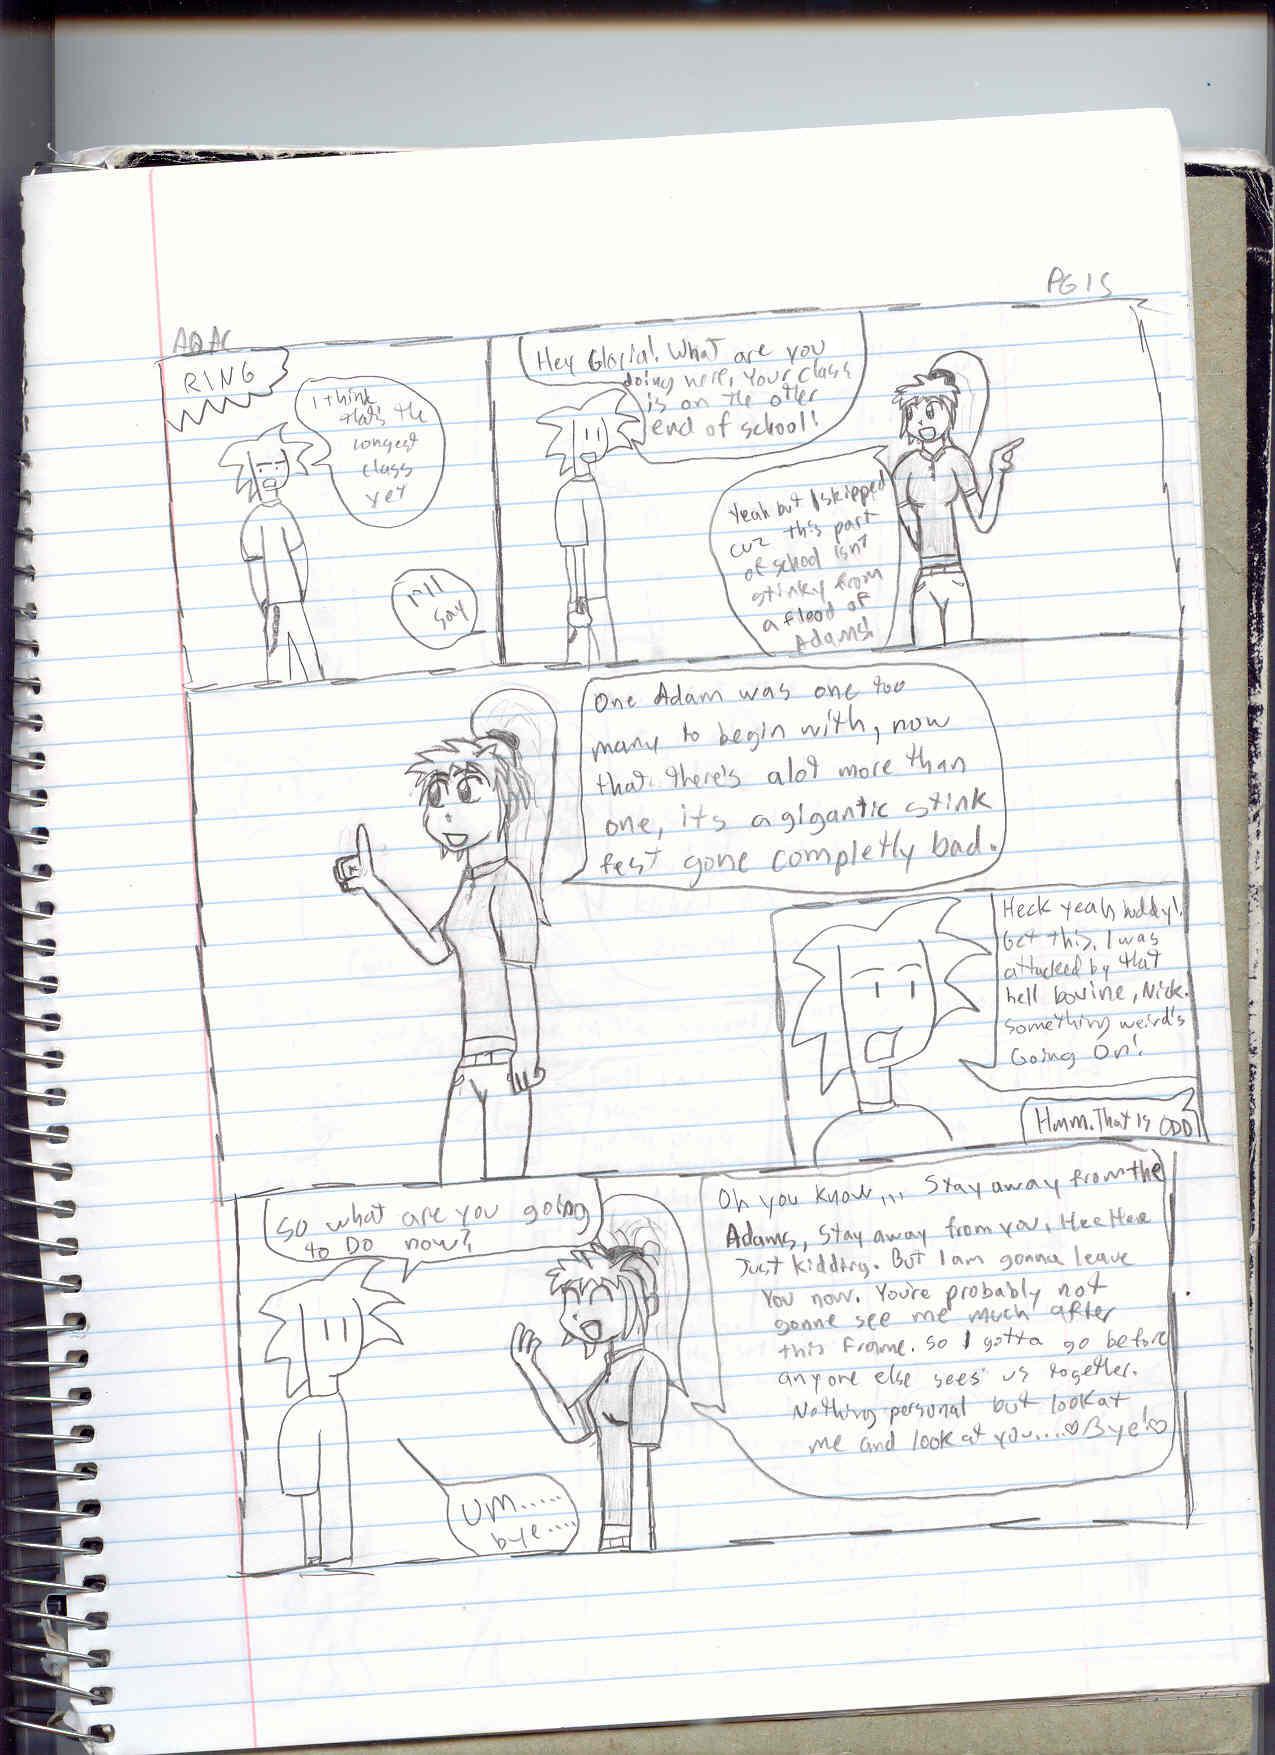 PG 15
AOAC
RING
I think
that's the
longest
class
yet
I'll
say
Hey Gloria! What are you
doing here, Your class
is on the other
end of school!
Yeah but I skipped
cuz this part
of school isnt
stinky from
a flood of
Adams!
One Adam was one too
many to begin with, now
that there's alot more than
one, its a gigantic stink
fest gone completly bad.
Heck yeah buddy!
Get this, I was
attacked by that
hell bovine, Nick.
something weird's
Going On!
Hmm. That is ODD
So what are you going
to Do now?
Oh you know... Stay away from the
Adams, Stay away from you, Hee Hee
Just kidding. But I am gonna leave
You now. You're probably not
gonne see me much after
this Frame. so I gotta go before
anyone else sees us together.
Nothing personal but look at
me and look at you....♡Bye!♡
UM.....
bye....